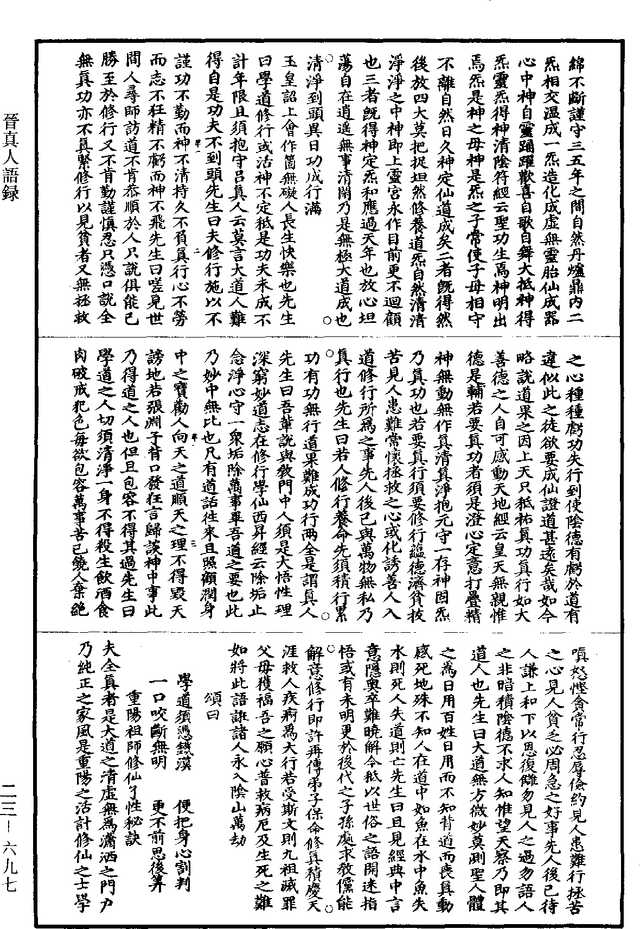 晉真人語録
綿不斷謹守三五年之間自然丹爐鼎内二
炁相交温成一炁造化成虛無靈胎仙成器
心中神自靈踊躍歡喜自歌自舞大抵神得
炁靈炁得神清陰符經云聖功生焉神明出
焉炁是神之母神是炁之子常使子母相守
不離自然日久神定仙道成矣二者既得然
後放四大莫把捉坦然修養道炁自然清清
淨淨之中神即上靈宫永作目前更不迴顧
也三者既得神定炁和應過天年也放心坦
蕩自在逍遥無事清閑乃是無極大道成也
清淨到頭異日功成行滿
玉皇詔上會作箇無礙人長生快樂也先生
曰學道修行或沽神不定秪是功夫未成不
計年限且須抱守吕真人云莫言大道人難
得自是功夫不到頭先生曰夫修行施以不
謹功不勤而神不清持久不有真行心不勞
而志不枉精不虧而神不飛先生曰嗟見世
間人尋師訪道不肯恭順於人只說俱能己
勝至於修行又不肯勤謹慎忍只憑口說全
無真功亦不真緊修行以見貧者又無拯救
之心種種虧功失行到使陰德有虧於道有
違似此之徒欲要成仙證道甚遠矣哉如今
略說道果之因上天只秪祐真功真行如大
善德之人自可感動天地經云皇天無親惟
德是輔若要真功者須是澄心定意打疊精
神無動無作真清真淨抱元守一存神固炁
乃真功也若要真行須要修行藴德濟貧拔
苦見人患難常懷拯救之心或化誘善人入
道修行所爲之事先人後己與萬物無私乃
真行也先生曰若人修行養命先須積行累
功有功無行道果難成功行兩全是謂真人
先生曰吾輩說與教門中人須是大悟性理
深窮妙道志在修行學仙西昇經云除垢止
念淨心守一衆垢除萬事畢吾道之要也此
乃妙中無比也凡有道話往來且照顧潤身
中之寶勸人向天之道順天之理不得毁天
謗地若張淵子肯口發狂言歸談神中事此
乃得道之人也但且包容不得其過先生曰
學道之人切須清淨一身不得殺生飲酒食
肉破戒犯色每欲包容萬事苦己饒人棄絶
嗔怒慳貪常行忍辱儉約見人患難行拯苦
之心見人貧乏必周急之好事先人後己待
人謙上和下以恩復讎勿見人之過勿語人
之非暗積陰德不求人知惟望天察乃即其
道人也先生曰大道無方微妙莫測聖人體
之爲日用百姓日用而不知背道而喪真動
感死地殊不知人在道中如魚在水中魚失
水則死人失道則亡先生曰且見經典中言
意隱奥卒難曉解今秪以世俗之語開迷指
悟或有未明更於後代之子孫處求教儻能
解意修行即許再傳弟子保命修真積慶天
涯救人疾病爲大行若受斯文則九祖滅罪
父母獲福吾之願心普救病厄及生死之難
如將此語誑諸人永入陰山萬劫
頌曰
學道須憑鐵漢　便把身心割判
一口咬斷無明　更不前思後筭
重陽祖師修仙了性秘訣
夫全真者是大道之清虛無爲瀟洒之門戶
乃純正之家風是重陽之活計修仙之士學
二三—六九七